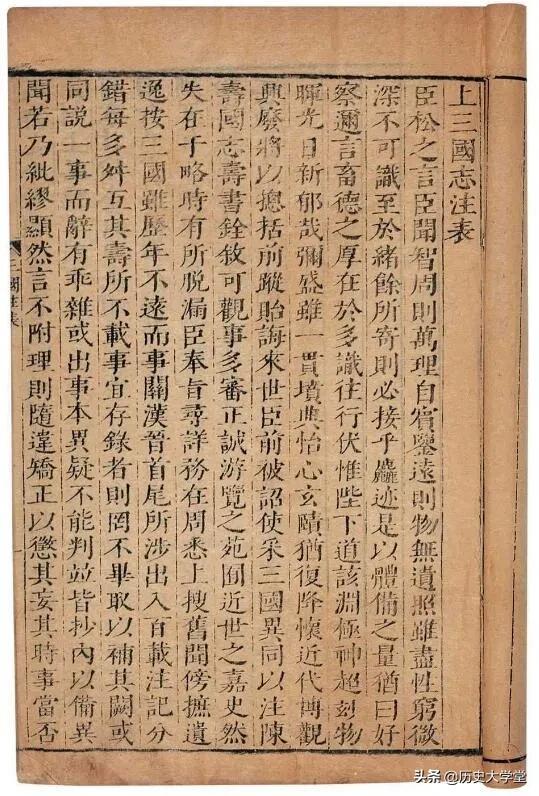 上三國志注表
臣松之言臣聞智周則萬理自賓鑒遠則物無遺照雖盡性窮微
深不可識至於緒餘所寄則必接乎麤迹是以體備之量猶曰好
察邇言畜德之厚在於多識往行伏惟陛下道該淵極神超玅物
暉光日新郁哉彌盛雖一貫墳典怡心玄賾猶復降懷近代博觀
興廢將以摠括前蹤貽誨來世臣前被詔使采三國異同以注陳
壽國志壽書銓敘可觀事多審正誠游覽之苑囿近世之嘉史然
失在于略時有所脫漏臣奉旨尋詳務在周悉上搜舊聞傍摭遺
逸按三國雖歷年不遠而事關漢晉首尾所涉出入百載注記分
錯每多舛互其壽所不載事宜存錄者則罔不畢取以補其闕或
同說一事而辭有乖雜或出事本異疑不能判並皆抄內以備異
聞若乃紕繆顯然言不附理則隨違矯正以懲其妄其時事當否
國注表
头条 @历史大学堂